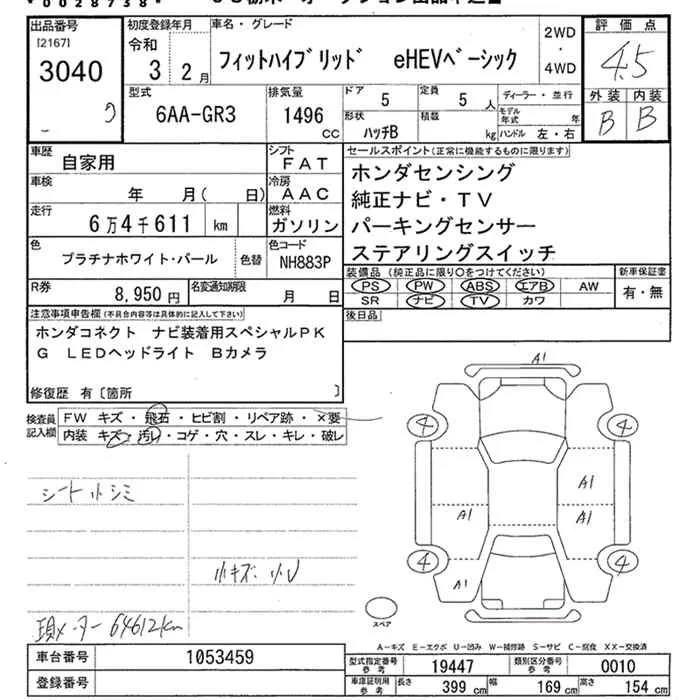 *0028738*
出品番号
[2167]
3040
初度登録年月
令和
3 2月
車名・グレード
フィットハイブリッド eHEVベーシック
2WD
・
4WD
評価点
4.5
外装 内装
B B
型式
6AA-GR3
排気量
1496
CC
ドア
5
定員
5人
ディーラー・並行
モデル年式 年
形状
ハッチB
積載
kg
ハンドル 左・右
車歴
自家用
シフト
FAT
セールスポイント(正常に機能するものに限ります)
ホンダセンシング
純正ナビ・TV
パーキングセンサー
ステアリングスイッチ
車検
年 月( 日)
冷房
AAC
走行
6万4千611 km
燃料
ガソリン
色
プラチナホワイト・パール
色替
色コード
NH883P
装備品(純正品に限り○をつけてください)
PS PW ABS エアB AW
SR ナビ TV カワ
新車保証書
有・無
R券
8,950円
名変通知期限
月 日
後日品
注意事項申告欄(不具合内容等は具体的に記入して下さい)
ホンダコネクト ナビ装着用スペシャルPK
G LEDヘッドライト Bカメラ
修復歴 有〔箇所 〕
検査員
記入欄
FW キズ・飛石・ヒビ割・リペア跡・×要
内装 キズ・汚レ・コゲ・穴・スレ・キレ・破レ
シート小シミ
小キズ・小U
現メーター64612km
A1
4 4
A1
A1 A1
4 4
A1
スペア
A-キズ E-エクボ U-凹み W-補修跡 S-サビ C-腐食 XX-交換済
車台番号
1053459
登録番号
型式指定番号
参考
19447
類別区分番号
参考
0010
車庫証明用
参考
長さ 399 cm 幅 169 cm 高さ 154 cm